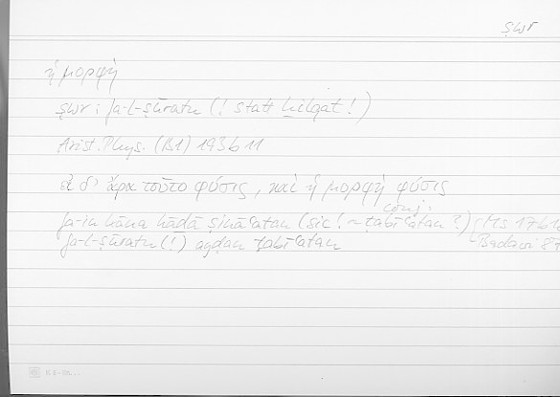 ṣwr
ἡ μορφή
ṣwr : fa-l-ṣūratu (! statt ḫilqat!)
Arist. Phys. (B1) 193b11
εἰ δ' ἄρα τοῦτο φύσις, καὶ ἡ μορφὴ φύσις
conj.
fa-in kāna hāḏā ṣināʿatan (sic! ~ ṭabīʿatan?) Ms 17b
fa-l-ṣūratu (!) ayḍan ṭabīʿatan Badawī 87